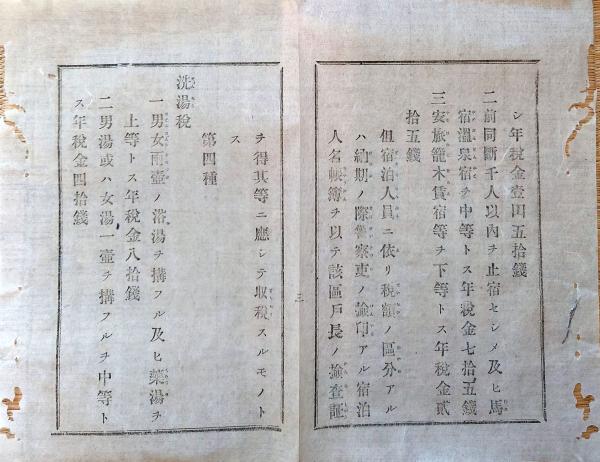 シ年税金壹円五拾錢
二前同斷千人以內ヲ止宿セシメ及ヒ馬
宿溫泉宿ヲ中等トス年税金七拾五錢
三安旅籠木賃宿等ヲ下等トス年税金貳
拾五錢
但宿泊人員ニ依リ税額ノ區分アル
ハ納期ノ際警察吏ノ撿印アル宿泊
人名帳簿ヲ以テ該區戸長ノ撿査証
三
ヲ得其等ニ應シテ収税スルモノト
ス
第四種
洗湯税
一男女兩壺ノ浴湯ヲ搆フル及ヒ藥湯ヲ
上等トス年税金八拾錢
二男湯或ハ女湯一壺ヲ搆フルヲ中等ト
ス年税金四拾錢